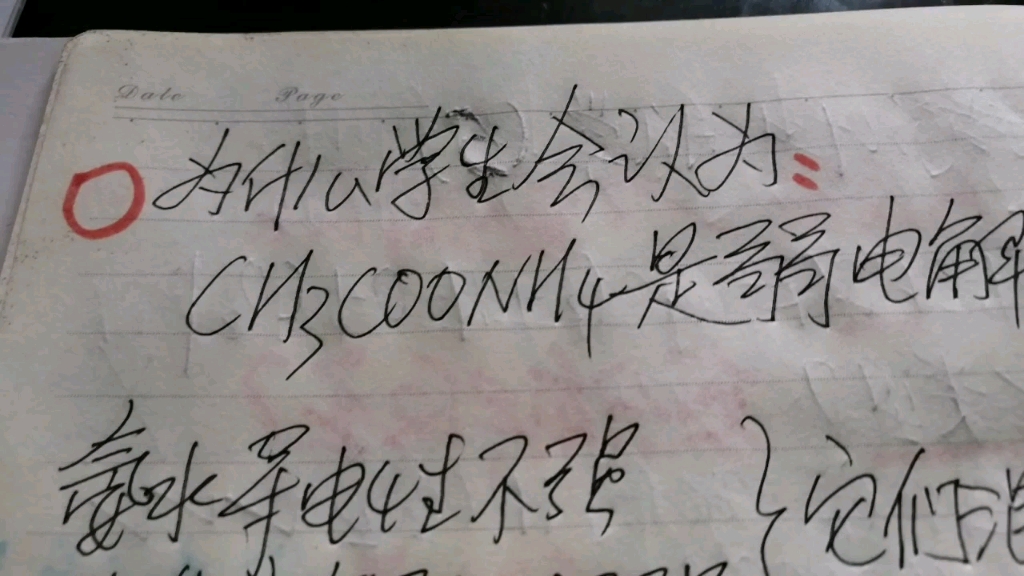 Date Page
为什么学生会认为：
CH3COONH4是弱电解
氨水导电性不强 } 它们